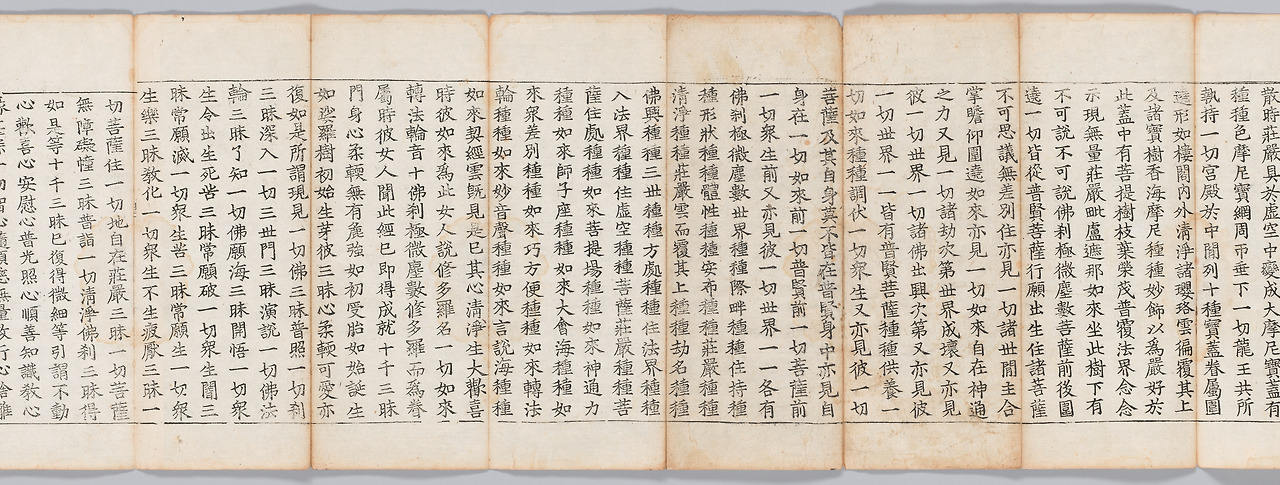 散時莊嚴具於虛空中變成大摩尼寶蓋有
種種色摩尼寶網周帀垂下一切龍王共所
執持一切宮殿於中間列十種寶蓋眷屬圍
遶形如樓閣內外清淨諸瓔珞雲徧覆其上
及諸寶樹香海摩尼種種妙飾以爲嚴好於
此蓋中有菩提樹枝葉榮茂普覆法界念念
示現無量莊嚴毗盧遮那如來坐此樹下有
不可說不可說佛剎極微塵數菩薩前後圍
遶一切皆從普賢菩薩行願出生住諸菩薩
不可思議無差別住亦見一切諸世間主合
掌瞻仰圍遶如來亦見一切如來自在神通
之力又見一切諸劫次第世界成壞又亦見
彼一切世界一切諸佛出興次第又亦見彼
一切世界一一皆有普賢菩薩種種供養一
切如來種種調伏一切衆生又亦見彼一切
菩薩及其自身莫不皆在普賢身中亦見自
身在一切如來前一切普賢前一切菩薩前
一切衆生前又亦見彼一切世界一一各有
佛剎極微塵數世界種種際畔種種住持種
種形狀種種體性種種安布種種莊嚴種種
清淨種種莊嚴雲而覆其上種種劫名種種
佛興種種三世種種方處種種住法界種種
入法界種種住虛空種種菩薩莊嚴種種菩
薩住處種種如來菩提場種種如來神通力
種種如來師子座種種如來大會海種種如
來衆差別種種如來巧方便種種如來轉法
輪種種如來妙音聲種種如來言說海種種
如來契經雲旣見是已其心清淨生大歡喜
時彼如來爲此女人說修多羅名一切如來
轉法輪音十佛剎極微塵數修多羅而爲眷
屬時彼女人聞此經已即得成就十千三昧
門身心柔輭無有麁強如初受胎如始誕生
如娑羅樹初始生芽彼三昧心柔輭可愛亦
復如是所謂現見一切佛三昧普照一切剎
三昧深入一切三世門三昧演說一切佛法
輪三昧了知一切佛願海三昧開悟一切衆
生令出生死苦三昧常願破一切衆生闇三
昧常願滅一切衆生苦三昧常願生一切衆
生樂三昧敎化一切衆生不生疲厭三昧一
切菩薩住一切地自在莊嚴三昧一切菩薩
無障礙幢三昧普詣一切清淨佛剎三昧得
如是等十千三昧已復得微細等引謂不動
心歡喜心安慰心普光照心順善知識敎心